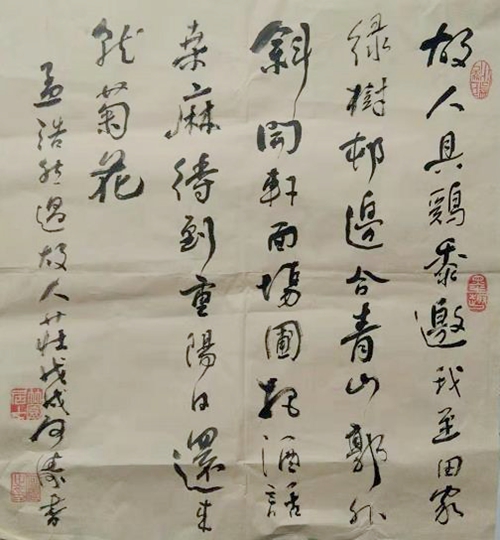 故人具鷄黍邀我至田家
緑樹邨邊合青山郭外
斜開軒面場圃把酒話
桑麻待到重陽日還来
就菊花
孟浩然過故人莊戊戌書